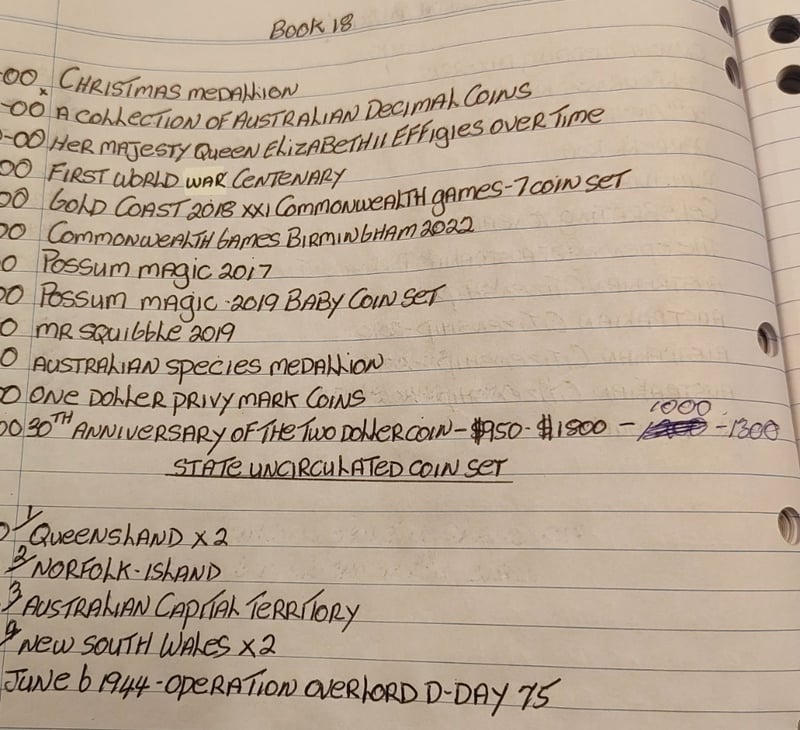 BOOK 18
-00 CHRISTMAS MEDALLION
-00 A COLLECTION OF AUSTRALIAN DECIMAL COINS
-00 HER MAJESTY QUEEN ELIZABETH II EFFIGIES OVER TIME
00 FIRST WORLD WAR CENTENARY
00 GOLD COAST 2018 XXI COMMONWEALTH GAMES-7 COIN SET
00 COMMONWEALTH GAMES BIRMINGHAM 2022
0 POSSUM MAGIC 2017
00 POSSUM MAGIC-2019 BABY COIN SET
0 MR SQUIBBLE 2019
0 AUSTRALIAN SPECIES MEDALLION
0 ONE DOLLER PRIVY MARK COINS
00 30TH ANNIVERSARY OF THE TWO DOLLER COIN-$950-$1800 - 1000 -1300
STATE UNCIRCULATED COIN SET
1/ QUEENSLAND X2
2/ NORFOLK-ISLAND
3/ AUSTRALIAN CAPITAL TERRITORY
4/ NEW SOUTH WALES X2
JUNE 6 1944-OPERATION OVERLORD D-DAY 75